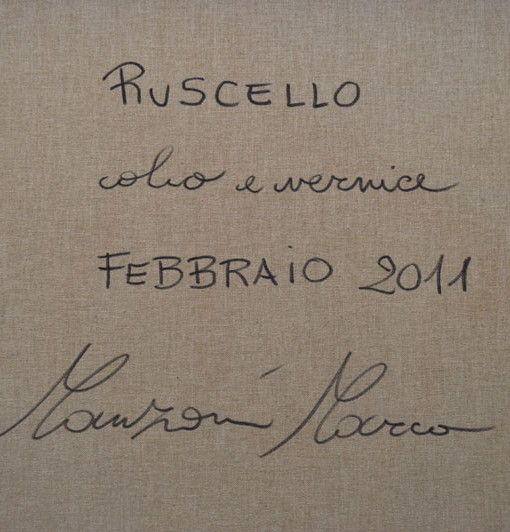 RUSCELLO
colio e vernice
FEBBRAIO 2011
Manzoni Marco